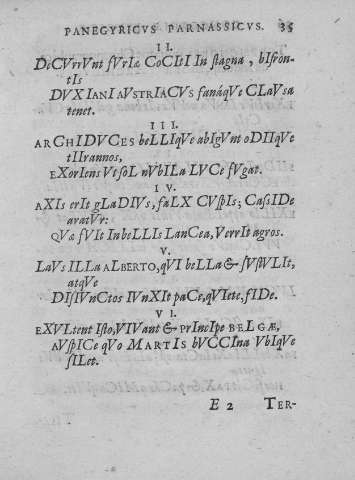 PANEGYRICVS PARNASSICVS. 35
II.
DeCVrrVnt fVrIæ CoCItI In stagna, bIfron-
tIs
DVX IANI AVSTRIACVS fanáqVe CLaVsa
tenet.
III.
ARCHIDVCES beLLIqVe abIgVnt oDIIqVe
tIIrannos,
EXorIens Vt soL nVbILa LVCe fVgat.
IV.
AXIs erIt gLaDIVs, faLX CVspIs; CassIDe
aratVr:
QVæ fVIt In beLLIs LanCea, VerrIt agros.
V.
LaVs ILLa ALBERTO, qVI beLLa & sVstVLIt,
atqVe
DIsIVnCtos IVnXIt paCe, qVIete, fIDe.
VI.
EXVLtent Isto, VIVant & prInCIpe BELGÆ,
AVspICe qVo MARTIS bVCCIna VbIqVe
sILet.
E 2 TER-